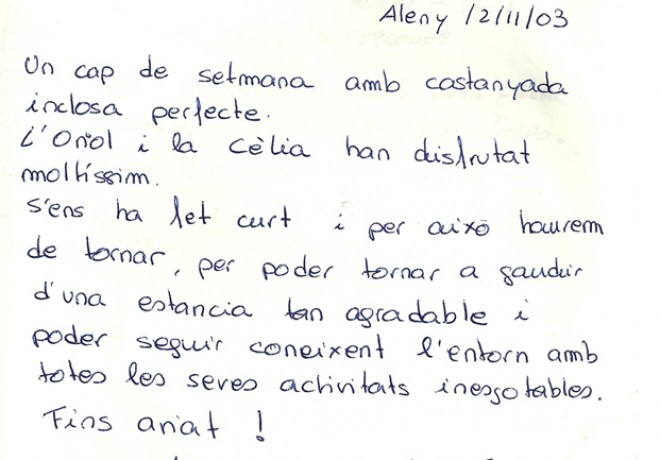 Aleny /2/11/03
Un cap de setmana amb castanyada
inclosa perfecte.
L'Oriol i la Cèlia han disfrutat
moltíssim.
S'ens ha fet curt i per això haurem
de tornar, per poder tornar a gaudir
d'una estancia tan agradable i
poder seguir coneixent l'entorn amb
totes les seves activitats inesgotables.
Fins aviat !